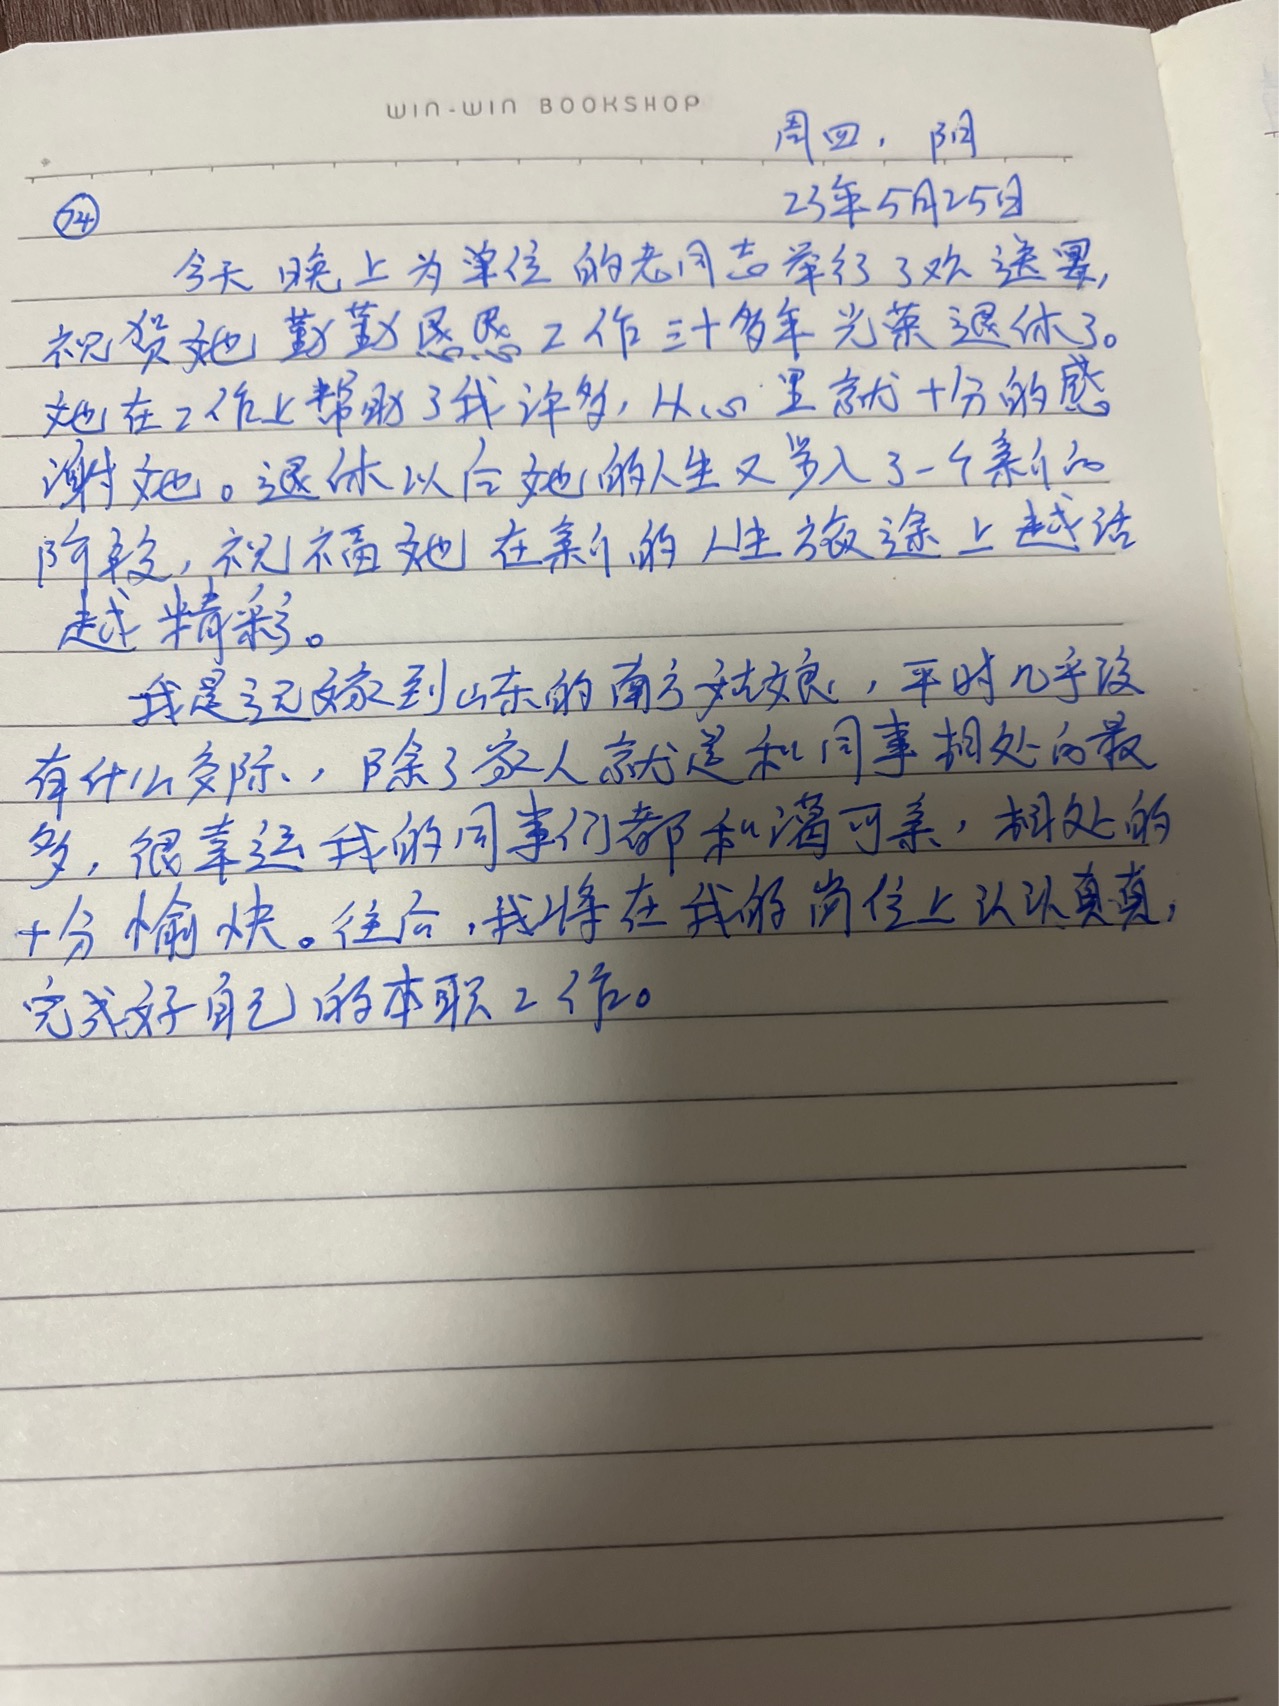 WIN-WIN BOOKSHOP
周四，阴
74
23年5月25日
今天晚上为单位的老同志举行了欢送宴，
祝贺她勤勤恳恳工作三十多年光荣退休了。
她在工作上帮助了我许多，从心里就十分的感
谢她。退休以后她的人生又步入了一个新的
阶段，祝福她在新的人生旅途上越活
越精彩。
我是远嫁到山东的南方姑娘，平时几乎没
有什么交际，除了家人就是和同事相处的最
多，很幸运我的同事们都和蔼可亲，相处的
十分愉快。往后，我将在我的岗位上认认真真，
完成好自己的本职工作。